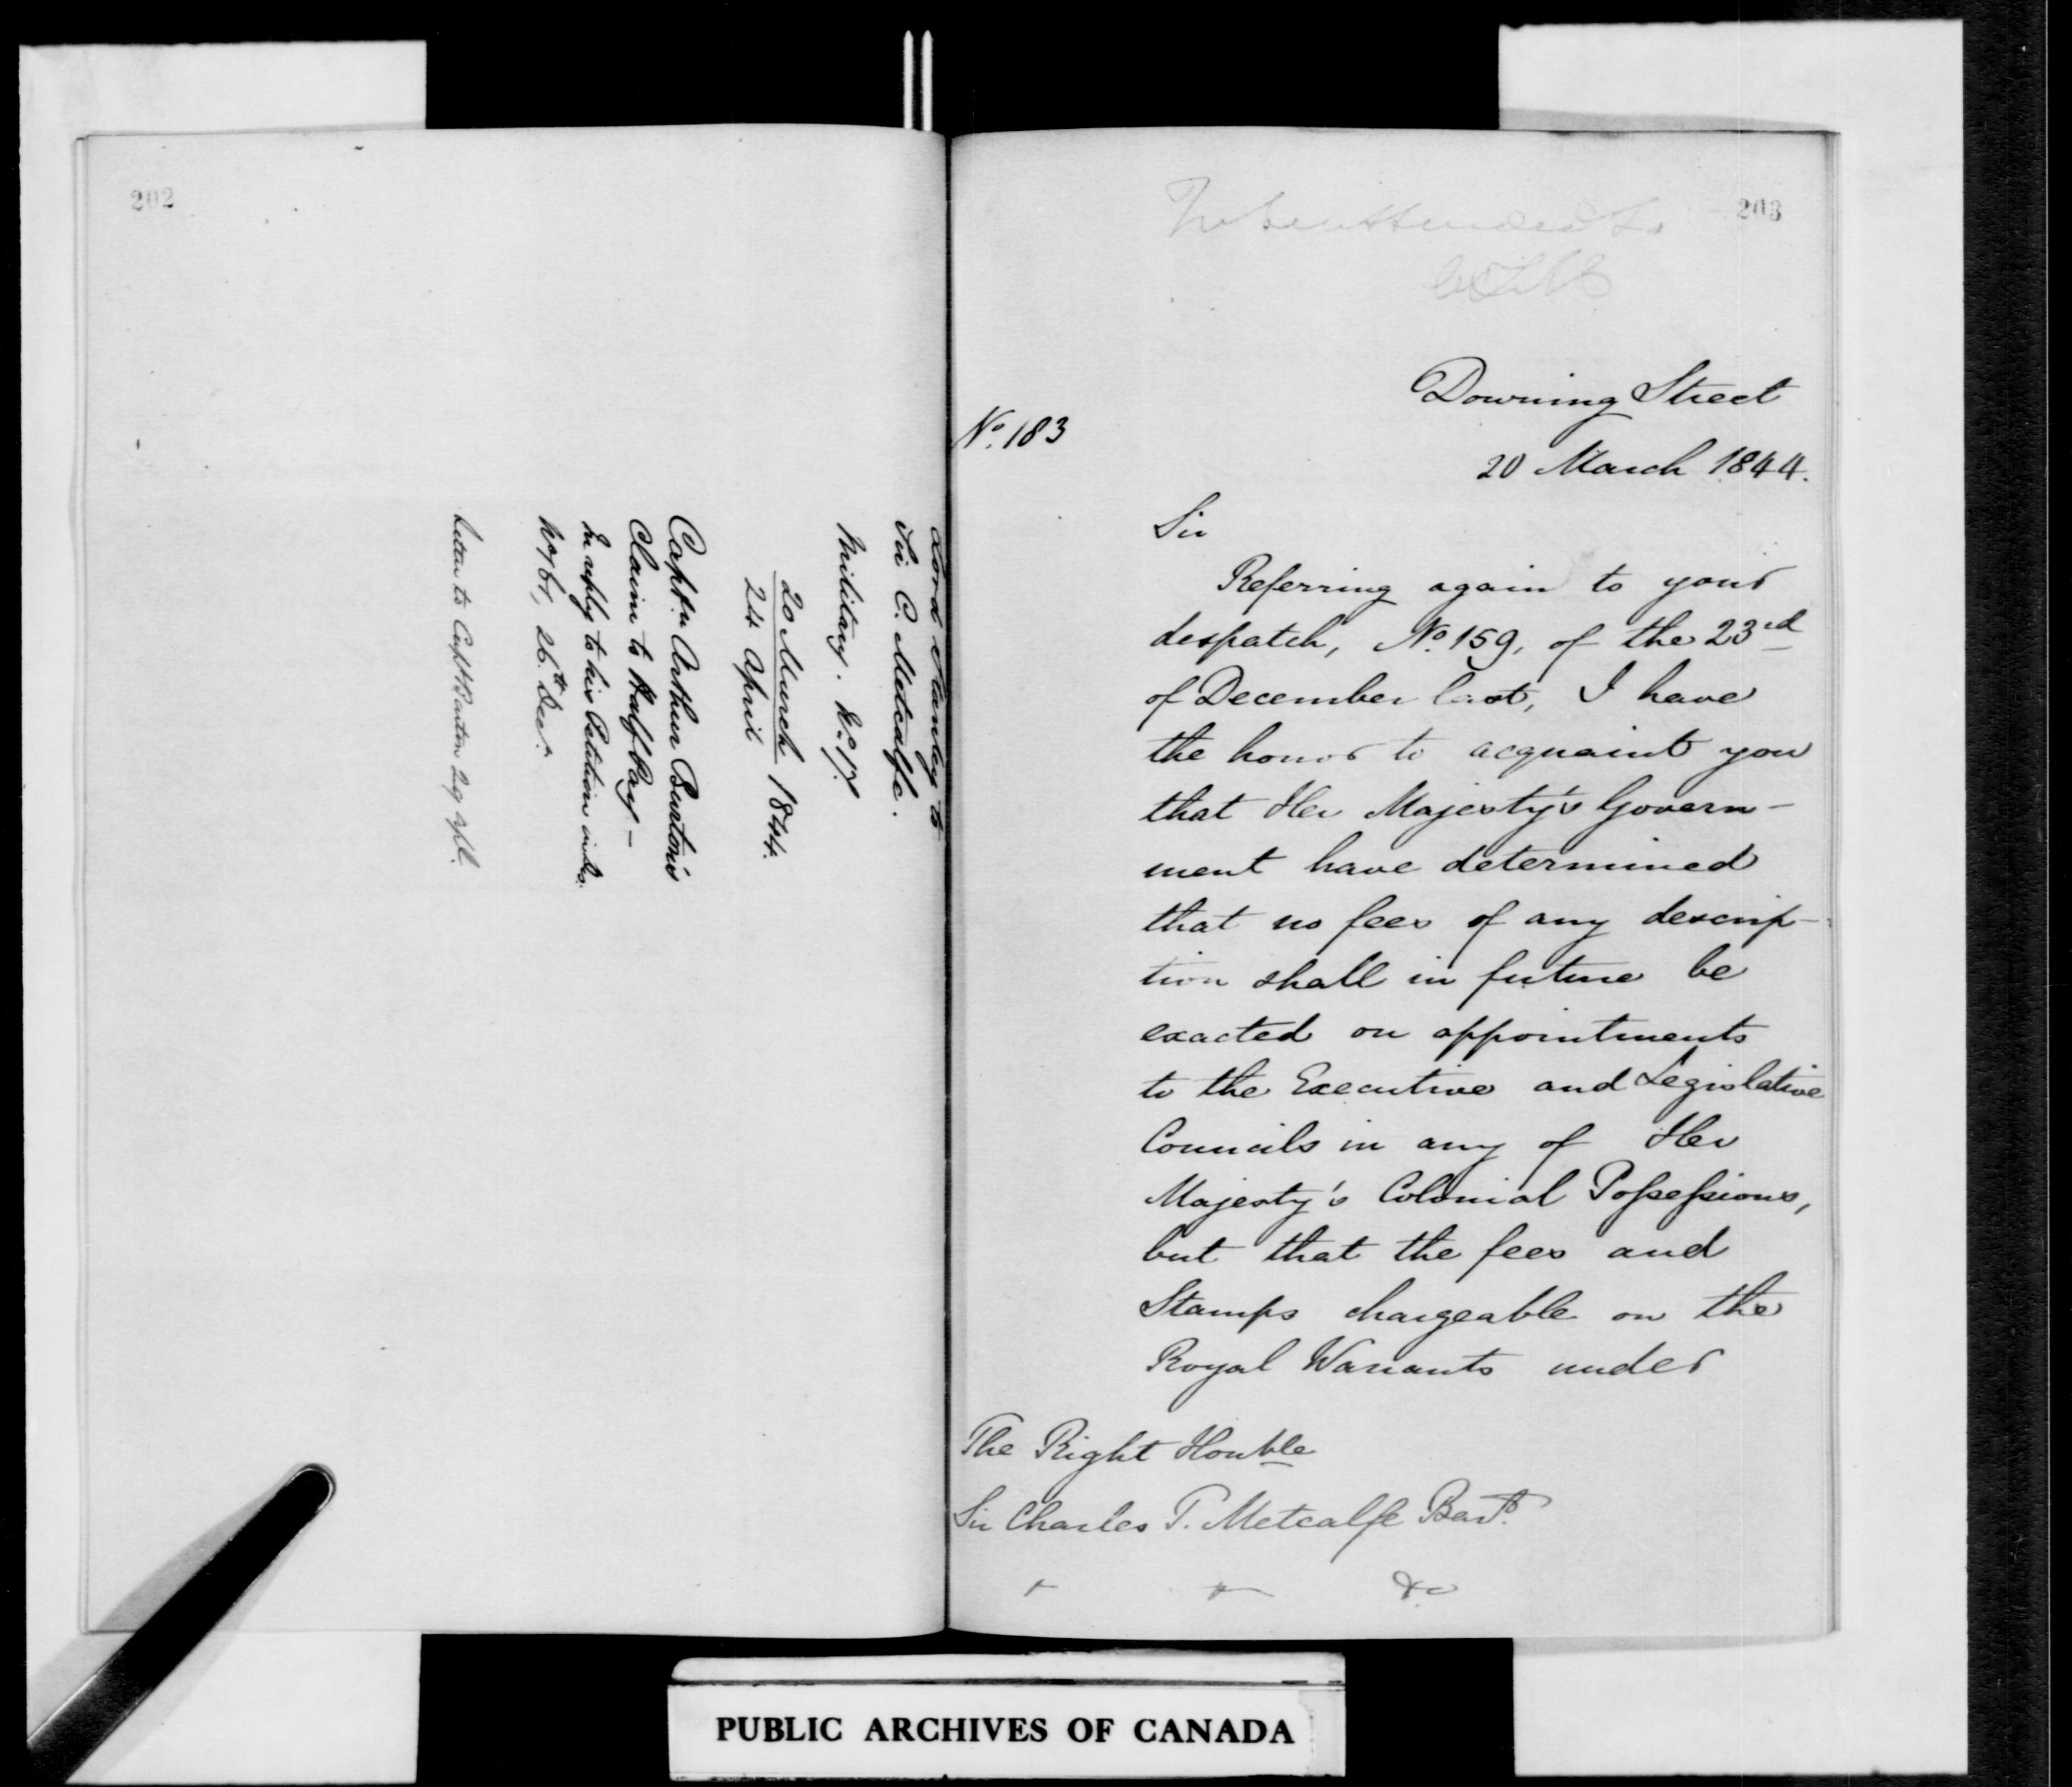 202
Lord Stanley to
Sir C. Metcalfe.
Military. No. 17.
20 March 1844.
24 April
Captn Arthur Burton's
Claim to Half Pay—
In reply to his Petition
26th Decr.
Letter to Capt Burton 29 Apl.
203
To be attended to
Downing Street
No. 183
20 March 1844.
Sir
Referring again to your
despatch, No. 159, of the 23rd
of December last, I have
the honor to acquaint you
that Her Majesty's Govern-
ment have determined
that no fees of any descrip-
tion shall in future be
exacted on appointments
to the Executive and Legislative
Councils in any of Her
Majesty's Colonial Possessions,
but that the fees and
Stamps chargeable on the
Royal Warrants under
The Right Honble
Sir Charles T. Metcalfe Bart.
&c
PUBLIC ARCHIVES OF CANADA